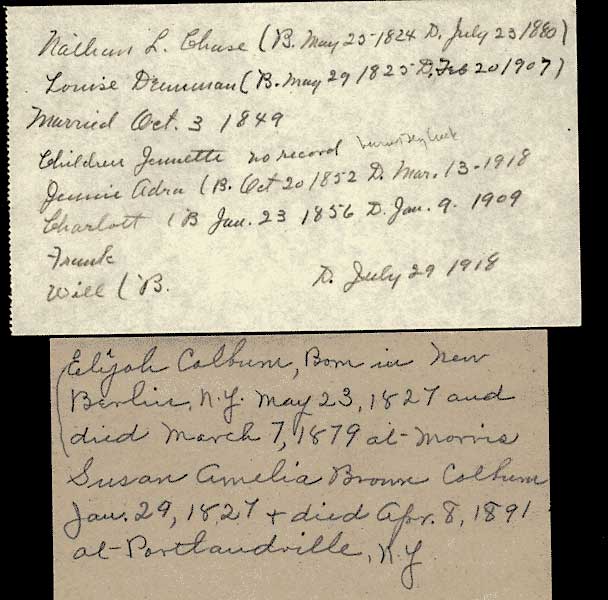 Nathan L. Chase (B. May 25-1824 D. July 23 1880)
Louise Drumman (B. May 29 1825 D. Feb 20 1907)
Married Oct. 3 1849
Children Jennette no record
Jennie Adra (B. Oct 20 1852 D. Mar. 13-1918
Charlott (B Jan. 23 1856 D. Jan. 9. 1909
Frank
Will (B. D. July 29 1918
Elijah Colburn, Born in New
Berlin, N.Y. May 23, 1827 and
died March 7, 1879 at Morris
Susan Amelia Brown Colburn
Jan. 29, 1827 + died Apr. 8, 1891
at Portlandville, N.Y